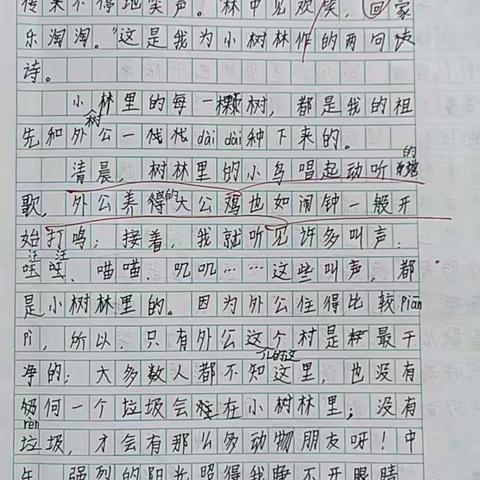 传来不停地笑声。"林中见欢笑,回家
乐淘淘。"这是我为小树林作的两句诗
诗。
小树林里的每一棵树,都是我的祖
先和外公一代代dài dài种下来的。
清晨,树林里的小鸟唱起动听的
歌,外公养得的大公鸡也如闹钟一般开
始打鸣;接着,我就听见许多叫声:
汪汪、喵喵、叽叽……这些叫声,都
是小树林里的。因为外公住得比较piān
pì,所以,只有外公这个村是最干
净的;大多数人都不知这里,也没有
任何一个垃圾会在小树林里;没有
rēn
垃圾,才会有那么多动物朋友呀!中
午,强烈的阳光照得我睁不开眼睛